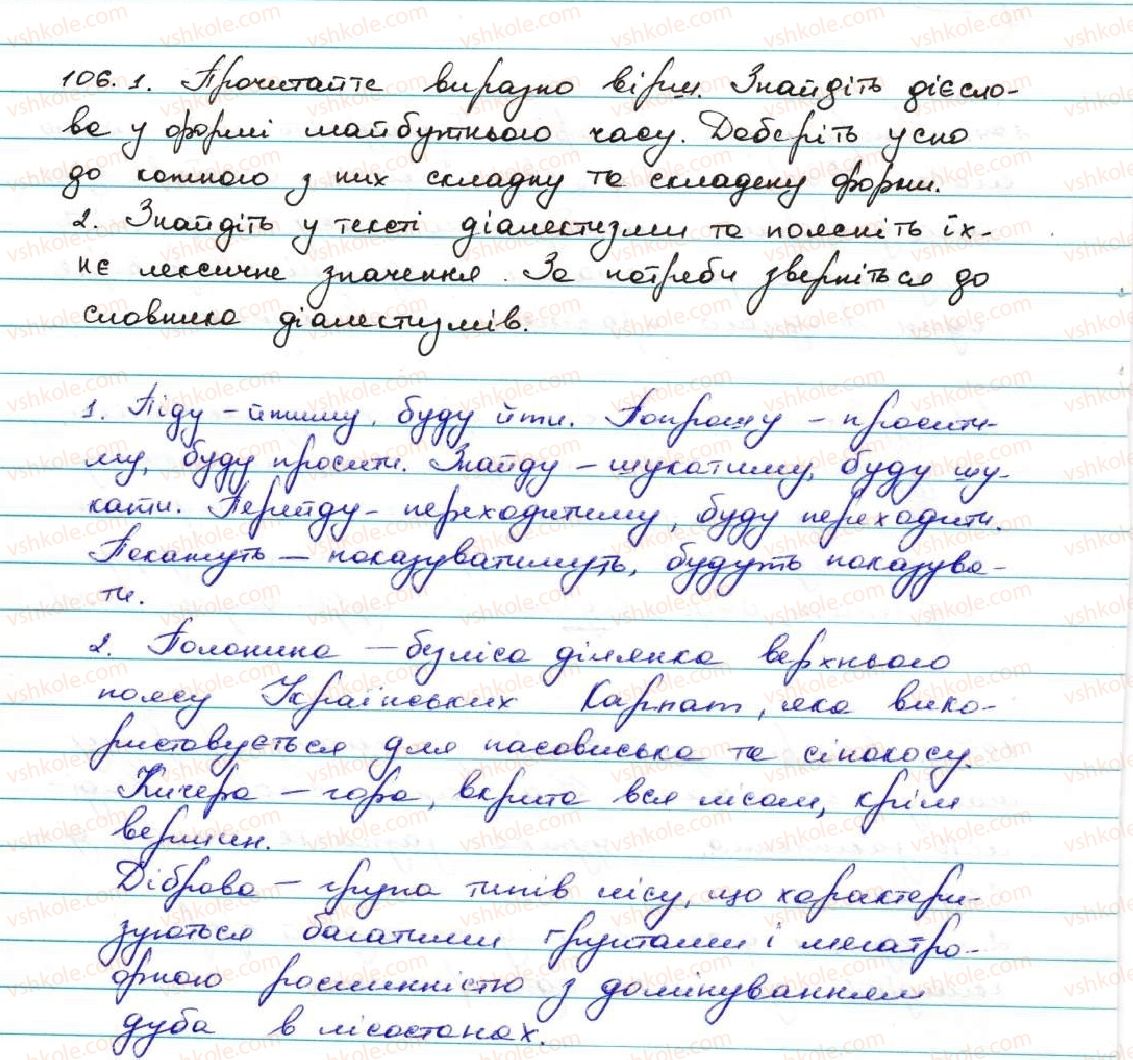 106. 1. Прочитайте виразно вірш. Знайдіть дієсло-
ва у формі майбутнього часу. Доберіть усно
до кожного з них складну та складену форми.
2. Знайдіть у тексті діалектизми та поясніть їх-
нє лексичне значення. За потреби зверніться до
словника діалектизмів.
1. Піду - йтиму, буду йти. Попрошу - просити-
му, буду просити. Знайду - шукатиму, буду шу-
кати. Перейду - переходитиму, буду переходити.
Покажуть - показуватимуть, будуть показува-
ти.
2. Полонина - безліса ділянка верхнього
поясу Українських Карпат, яка вико-
ристовується для пасовиська та сінокосу.
Кичера - гора, вкрита вся лісом, крім
вершин.
Діброва - група типів лісу, що характери-
зуються багатими ґрунтами і мегатро-
фною рослинністю з домінуванням
дуба в лісостанах.